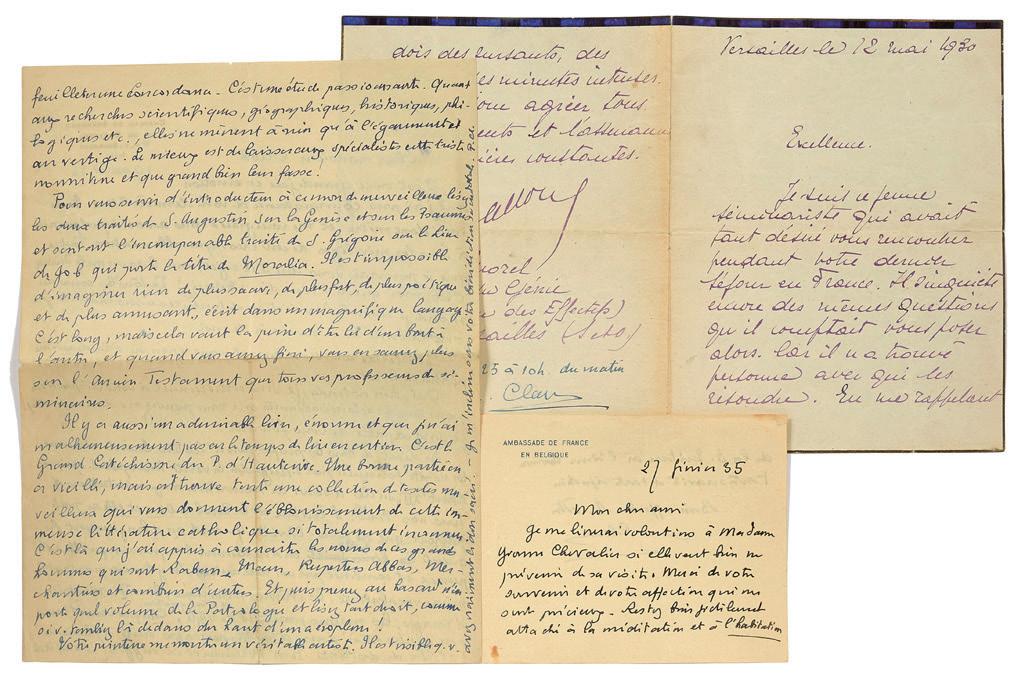 feuilleter une Concordance. C'est une étude passionnante. Quant
aux recherches scientifiques, géographiques, historiques, phi-
logiques etc., elles ne mènent à rien qu'à l'égarement et
au vertige. Le mieux est de laisser aux spécialistes cette triste
nourriture et que grand bien leur fasse.
Pour vous servir d'introducteur à ce monde merveilleux lisez
les deux traités de S. Augustin sur la Genèse et sur les Psaumes
et surtout l'incomparable traité de S. Grégoire sur le Livre
de Job qui porte le titre de Moralia. Il est impossible
d'imaginer rien de plus suave, de plus fort, de plus poétique
et de plus amusant, écrit dans un magnifique langage
C'est long, mais cela vaut la peine d'être lu d'un bout à
l'autre, et quand vous aurez fini, vous en saurez plus
sur l'Ancien Testament que tous vos professeurs de sé-
minaires.
Il y a aussi un admirable livre, énorme et que je n'ai
malheureusement pas eu le temps de lire en entier. C'est le
Grand Catéchisme du P. d'Hauterive. Une bonne partie en
a vieilli, mais on trouve toute une collection de textes mer
veilleux qui vous donnent l'éblouissement de cette im-
mense littérature catholique si totalement inconnue
C'est là que j'ai appris à connaître les noms de ces grands
hommes qui sont Raban Maur, Rupertus Abbas,
et combien d'autres. Et puis prenez au hasard n'im
porte quel volume de la Patrologie et lisez tout droit, comme
si v. tombiez là dedans du haut d'un aéroplane!
Votre peintre me montre un véritable artiste. Il est visible q. v.
avez vraiment le don sacré. - Je m'incline sous votre bénédiction P. Cl.
dois des instants, des
es minutes intenses.
agréer tous
ents et l'assurance
constantes.
Génie
des Effectifs)
ailles (S et O)
23 à 10h. du matin
Clav
Versailles le 12 mai 1930
Excellence.
Je suis ce jeune
séminariste qui avait
tant désiré vous rencontrer
pendant votre dernier
séjour en France. Il s'inquiète
encore des mêmes questions
qu'il comptait vous poser
alors. Car il n'a trouvé
personne avec qui les
résoudre. En me rappelant
AMBASSADE DE FRANCE
EN BELGIQUE
27 février 35
Mon cher ami
Je me livrerai volontiers à Madame
Yvonne Chevalier si elle veut bien me
prévenir de sa visite. Merci de votre
souvenir et de votre affection qui me
sont précieux. Restez bien fidèlement
attaché à la méditation et à l'habitation